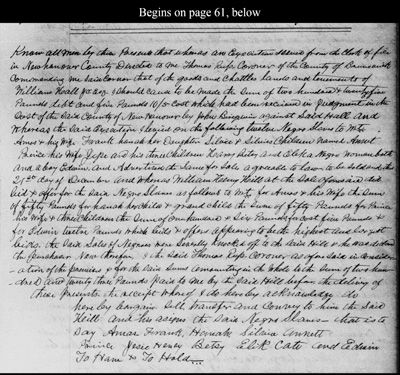 Begins on page 61, below
Know all men by these Presents that whereas an Execution Issued from the Clerk of
in Newhanover County Directed to me Thomas Rufs Coroner of the County of Brunswick
Commanding me said Coroner that of the goods and Chattles lands and tenements of
William Hall Esq I should cause to be made the Sum of two hundred & twenty five
Pounds debt and five Pounds 10/5 cost which had been recovered in Judgment in the
Court of the said County of New hanover by John against Said Hall and
Whereas the said Execution I levied on the following twelve Negro Slaves to Wit.
Amos & his Wife Frank hannah her Daughter Silvia & Silvias Children Named Annet
Prince his Wife Jesie and his three Children Henry Betsy and Elik a Negro woman
and a boy Edwin and Advertised the Same for Sale agreeable to law to be sold on the
21st day of December and Whereas William Hill at the Sale did
bid & offer for the said Negro Slaves as follows to Wit for Amos & his Wife the Sum
of fifty Pounds for hannah her Child & grand Child the Sum of fifty Pounds for Prince
his Wife & three Children the Sum of One hundred & Six Pounds for Cate five Pounds &
for Edwin twelve Pounds which bids & offers appearing to be the highest and
bids. the Said Sales of Negroes were Severally knocked off to the said Hill & he was declared
the Purchaser Now therefore I the Said Thomas Rufs Coroner as aforesaid in Consider
-ation of the premises & for the Said Sums amounting in the whole to the Sum of two hun-
-dred and twenty three Pounds Paid to me by the Said Hill before the delivery of
these Presents the receipt whereof I do hereby acknowledge do
hereby bargain Sell transfer and Convey to him the Said
Hill and his assigns the Said Negro Slaves that is to
Say Amos Frank Hannah Silvia Annett
Prince Jesie Henry Betsy Elik Cate and Edwin
To Have & To Hold